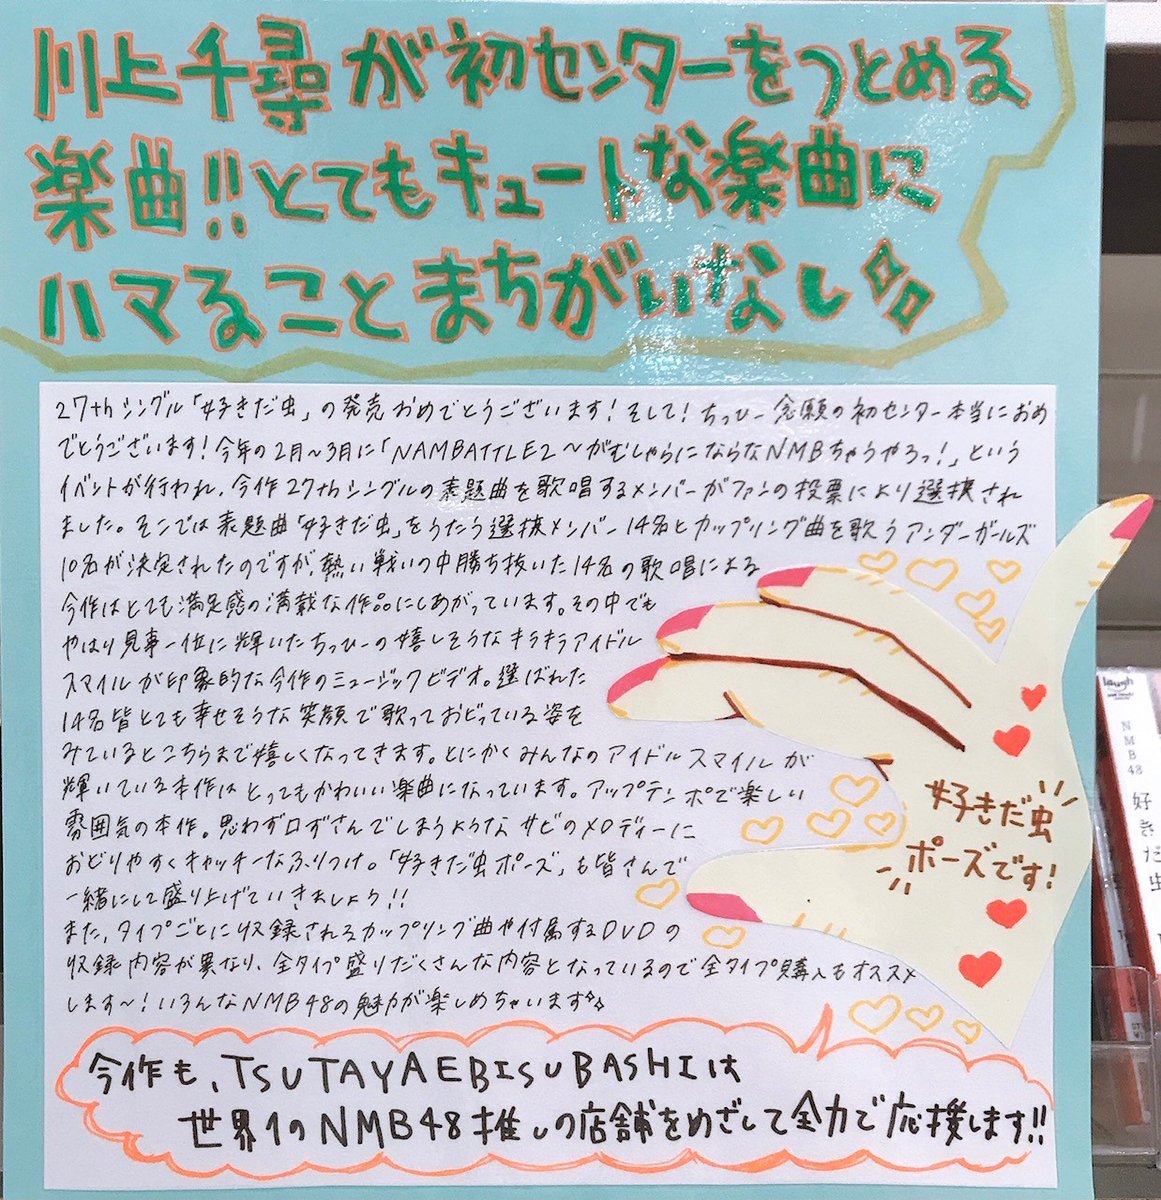 川上千尋が初センターをつとめる
楽曲!!とてもキュートな楽曲に
ハマることまちがいなし
27thシングル「好きだ虫」の発売おめでとうございます!そして!ちっひー念願の初センター本当におめ
でとうございます!今年の2月〜3月に「NAMBATTLE2〜がむしゃらにならなNMBちゃうやろっ!」という
イベントが行われ、今作27thシングルの表題曲を歌唱するメンバーがファンの投票により選抜され
ました。そこでは表題曲「好きだ虫」をうたう選抜メンバー14名とカップリング曲を歌うアンダーガールズ
10名が決定されたのですが、熱い戦いの中勝ち抜いた14名の歌唱による
今作はとても満足感の満載な作品にしあがっています。その中でも
やはり見事一位に輝いたちっひーの嬉しそうなキラキラアイドル
スマイルが印象的な今作のミュージックビデオ。選ばれた
14名皆とても幸せそうな笑顔で歌っておどっている姿を
みているとこちらまで嬉しくなってきます。とにかくみんなのアイドルスマイルが
輝いている本作はとってもかわいい楽曲になっています。アップテンポで楽しい
雰囲気の本作。思わず口ずさんでしまうようなサビのメロディーに
おどりやすくキャッチーなふりつけ。「好きだ虫ポーズ」も皆さんで
一緒にして盛り上げていきましょう!!
また、タイプごとに収録されるカップリング曲や付属するDVDの
収録内容が異なり、全タイプ盛りだくさんな内容となっているので全タイプ購入もオススメ
します〜!いろんなNMB48の魅力が楽しめちゃいます
好きだ虫
ポーズです!
今作も、TSUTAYAEBISUBASHIは
世界1のNMB48推しの店舗をめざして全力で応援します!!
laugh
NMB48 好きだ虫